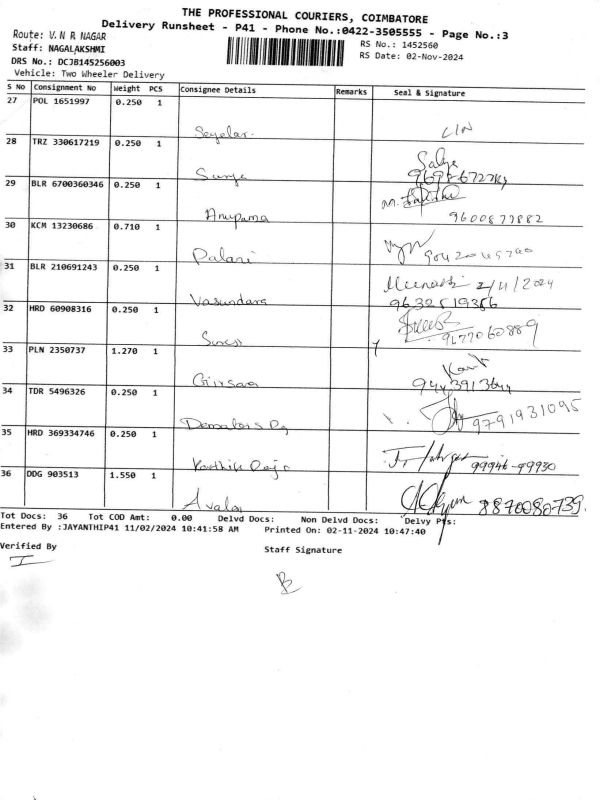 THE PROFESSIONAL COURIERS, COIMBATORE
Delivery Runsheet - P41 - Phone No.:0422-3505555 - Page No.:3
Route: V.N R NAGAR
RS No.: 1452560
Staff: NAGALAKSHMI
RS Date: 02-Nov-2024
DRS No.: DCJB145256003
Vehicle: Two Wheeler Delivery
S No Consignment No Weight PCS Consignee Details Remarks Seal & Signature
27 POL 1651997 0.250 1
28 TRZ 330617219 0.250 1
Surya
29 BLR 6700360346 0.250 1
Anupama 9600877882
30 KCM 13230686 0.710 1
Palani
31 BLR 210691243 0.250 1
Meenakshi 2/11/2024
Vasundara 9632519356
32 HRD 60908316 0.250 1
9677060889
33 PLN 2350737 1.270 1
34 TDR 5496326 0.250 1
9791931095
35 HRD 369334746 0.250 1
99946-99930
36 DDG 903513 1.550 1
8870080739
Tot Docs: 36 Tot COD Amt: 0.00 Delvd Docs: Non Delvd Docs: Delvy Pts:
Entered By :JAYANTHIP41 11/02/2024 10:41:58 AM Printed On: 02-11-2024 10:47:40
Verified By
Staff Signature